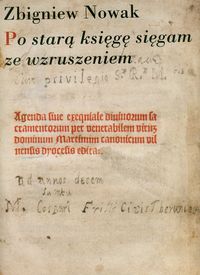 Zbigniew Nowak
Po starą księgę sięgam
ze wzruszeniem
privilegio
Agenda siue exequiale diuinorum sa
cramentorum per venerabilem virum
dominum Martinum canonicum vil
nensis dyocesis edita:
Ad annos decem
M. Caspari